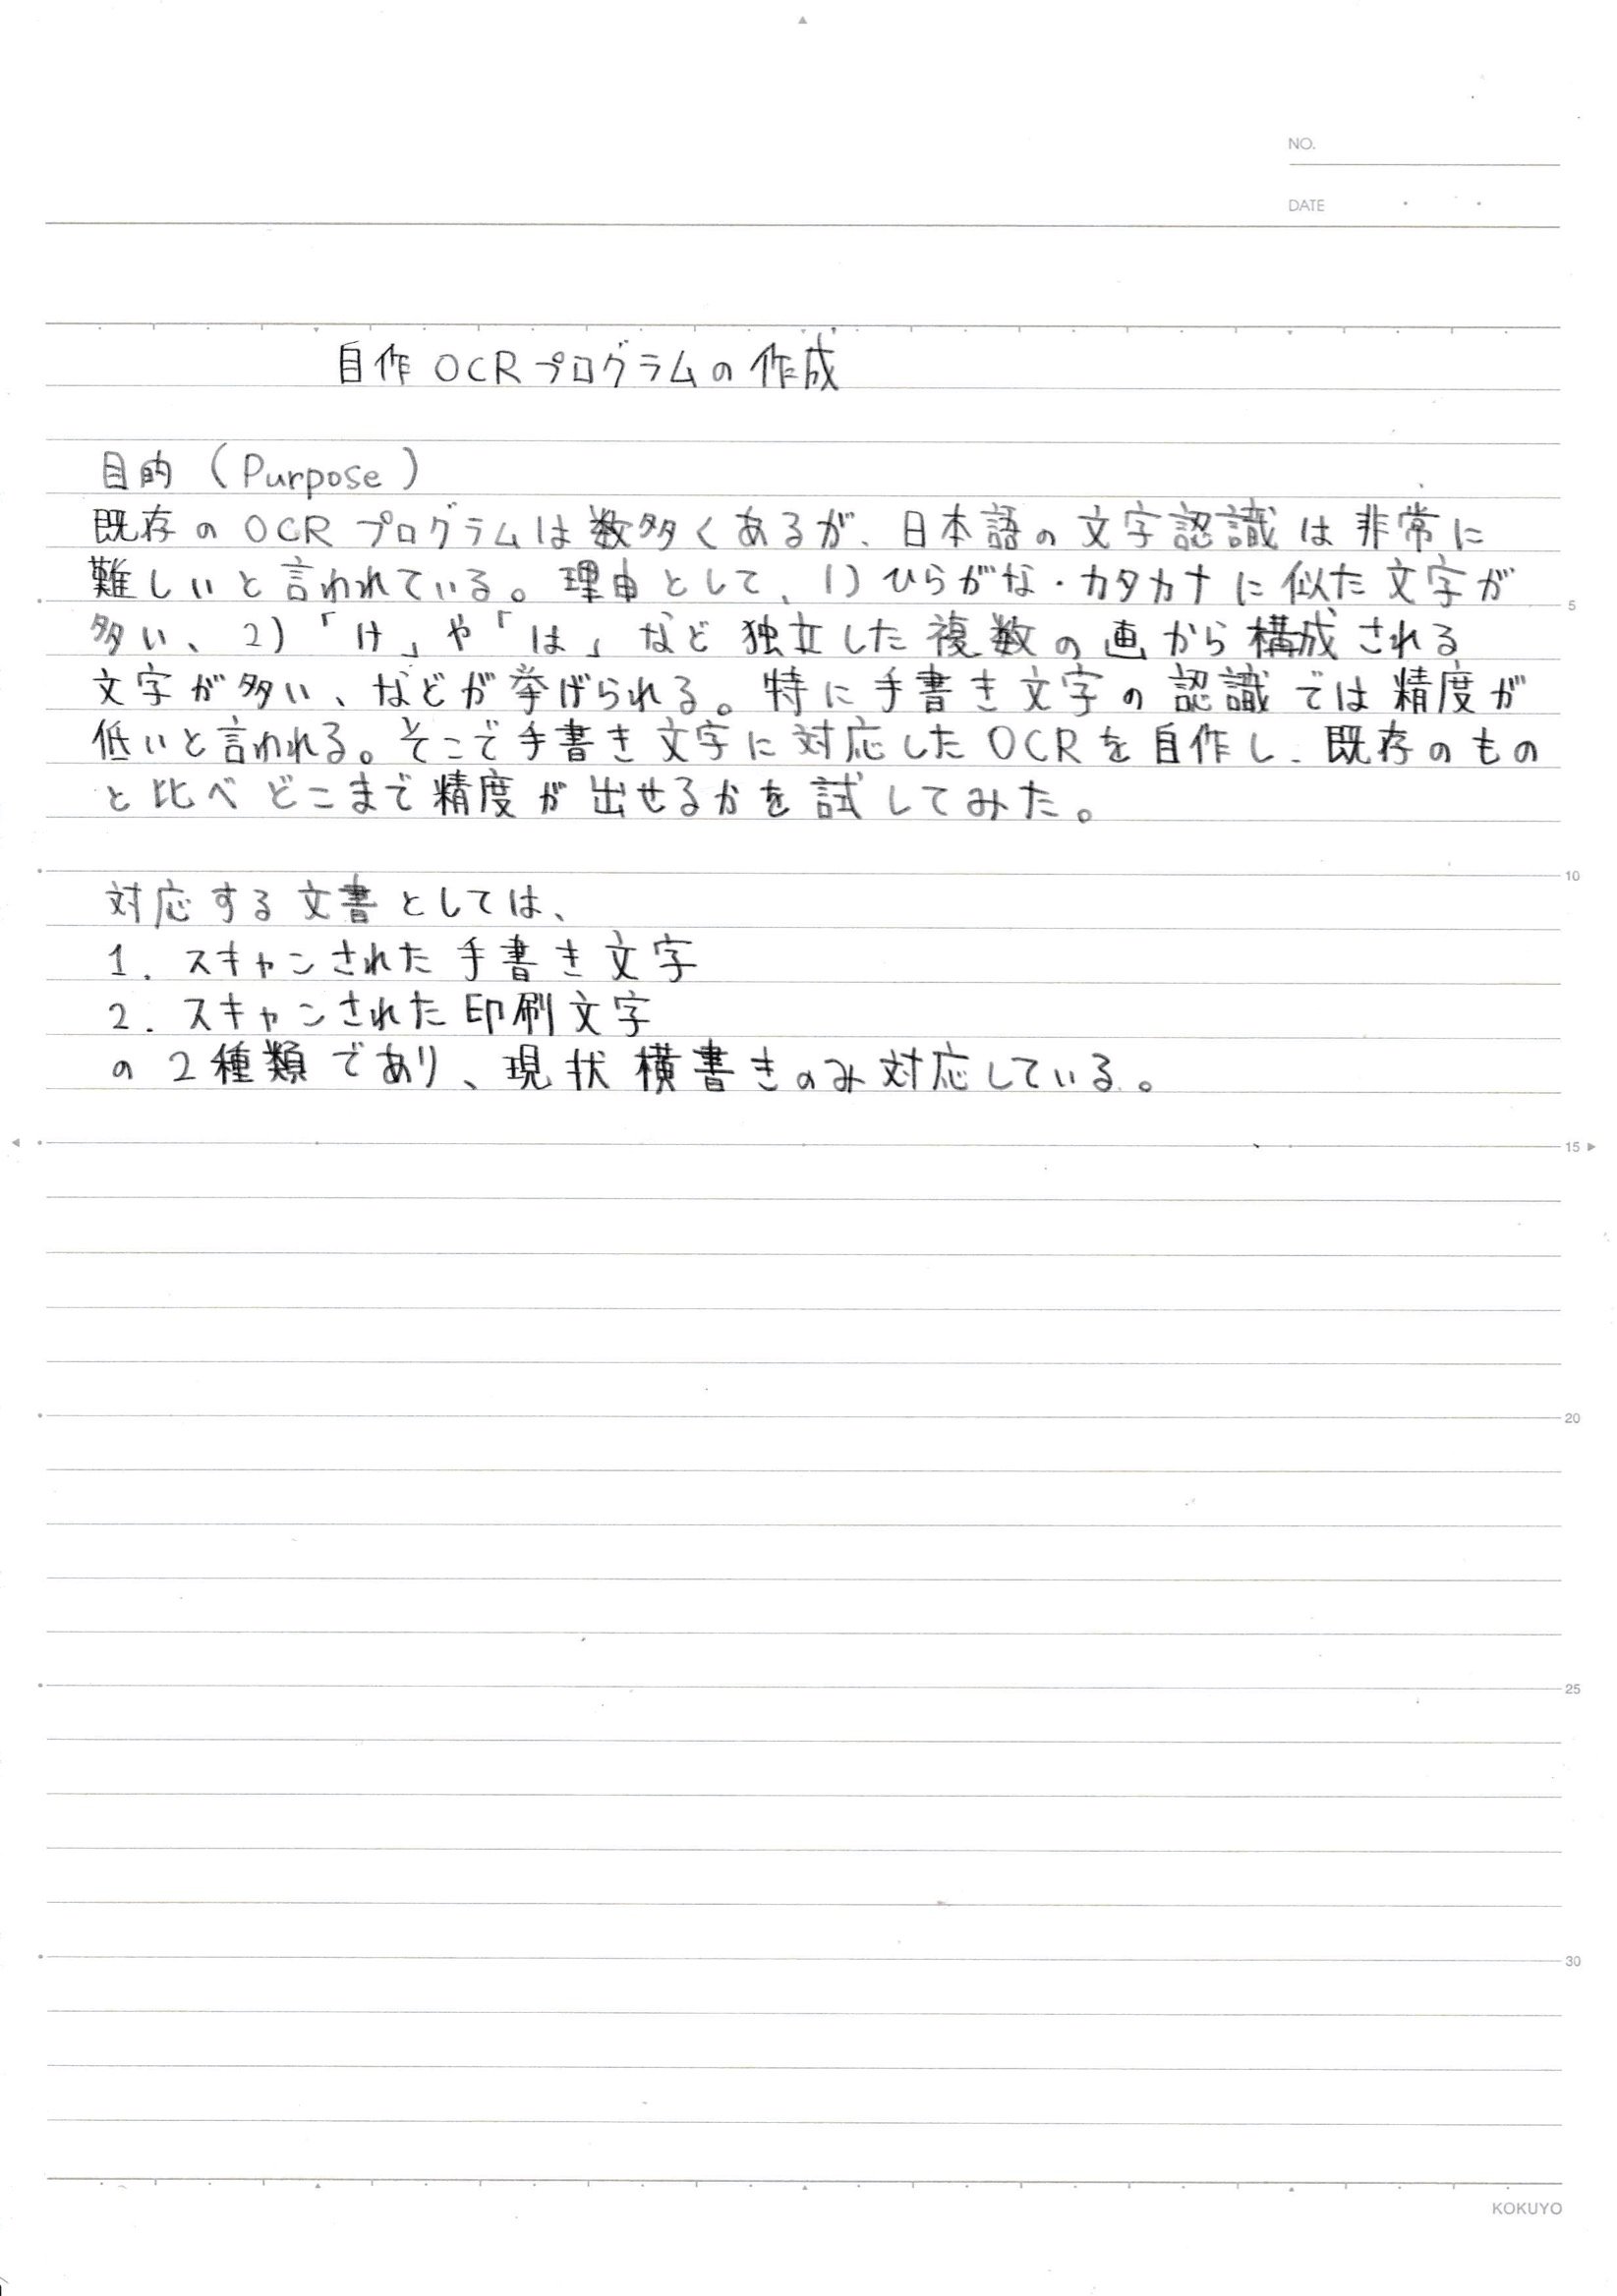 NO.
DATE
自作OCRプログラムの作成
目的（Purpose）
既存のOCRプログラムは数多くあるが、日本語の文字認識は非常に
難しいと言われている。理由として、1）ひらがな・カタカナに似た文字が
5
多い、2）「け」や「は」など独立した複数の画から構成される
文字が多い、などが挙げられる。特に手書き文字の認識では精度が
低いと言われる。そこで手書き文字に対応したOCRを自作し、既存のもの
と比べどこまで精度が出せるかを試してみた。
10
対応する文書としては、
1. スキャンされた手書き文字
2. スキャンされた印刷文字
の2種類であり、現状横書きのみ対応している。
15
20
25
30
KOKUYO